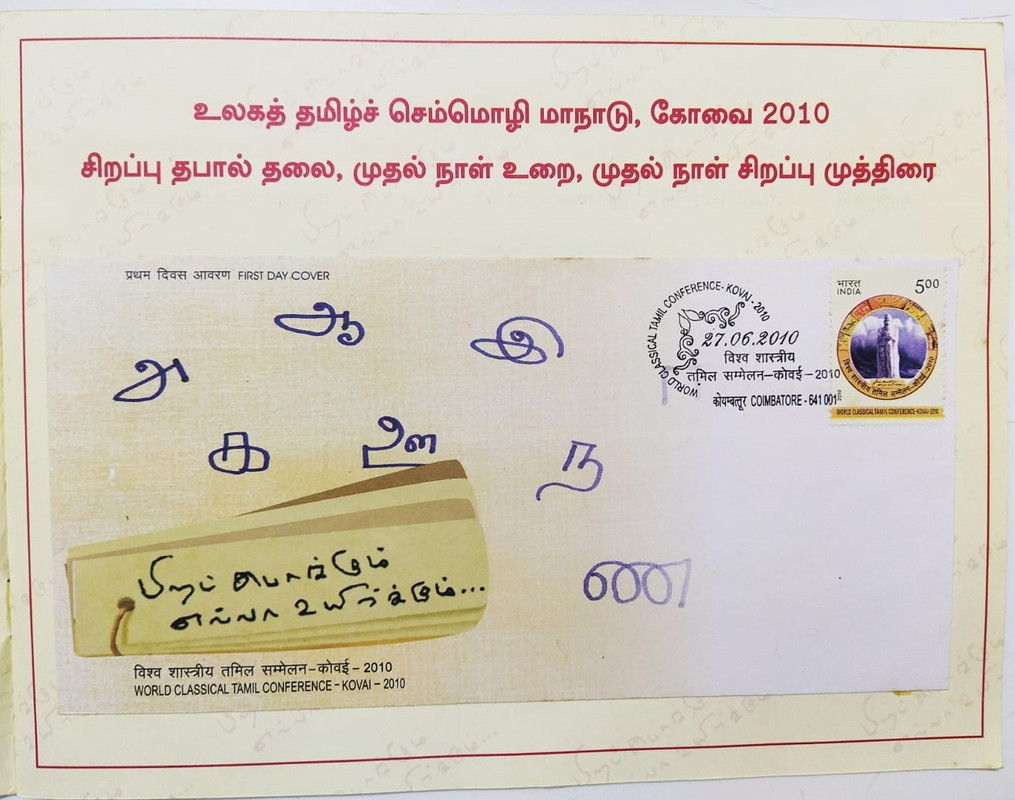 உலகத் தமிழ்ச் செம்மொழி மாநாடு, கோவை 2010
சிறப்பு தபால் தலை, முதல் நாள் உறை, முதல் நாள் சிறப்பு முத்திரை
प्रथम दिवस आवरण FIRST DAY COVER
அ ஆ இ
க ஊ ந
ண
WORLD CLASSICAL TAMIL CONFERENCE - KOVAI - 2010
27.06.2010
विश्व शास्त्रीय
तमिल सम्मेलन-कोवई - 2010
कोयम्बत्तूर COIMBATORE - 641 001
भारत
INDIA
500
विश्व शास्त्रीय तमिल सम्मेलन-कोवई-2010
WORLD CLASSICAL TAMIL CONFERENCE-KOVAI-2010
பிறப் பொக்கும்
எல்லா உயிர்க்கும்...
विश्व शास्त्रीय तमिल सम्मेलन-कोवई - 2010
WORLD CLASSICAL TAMIL CONFERENCE - KOVAI - 2010